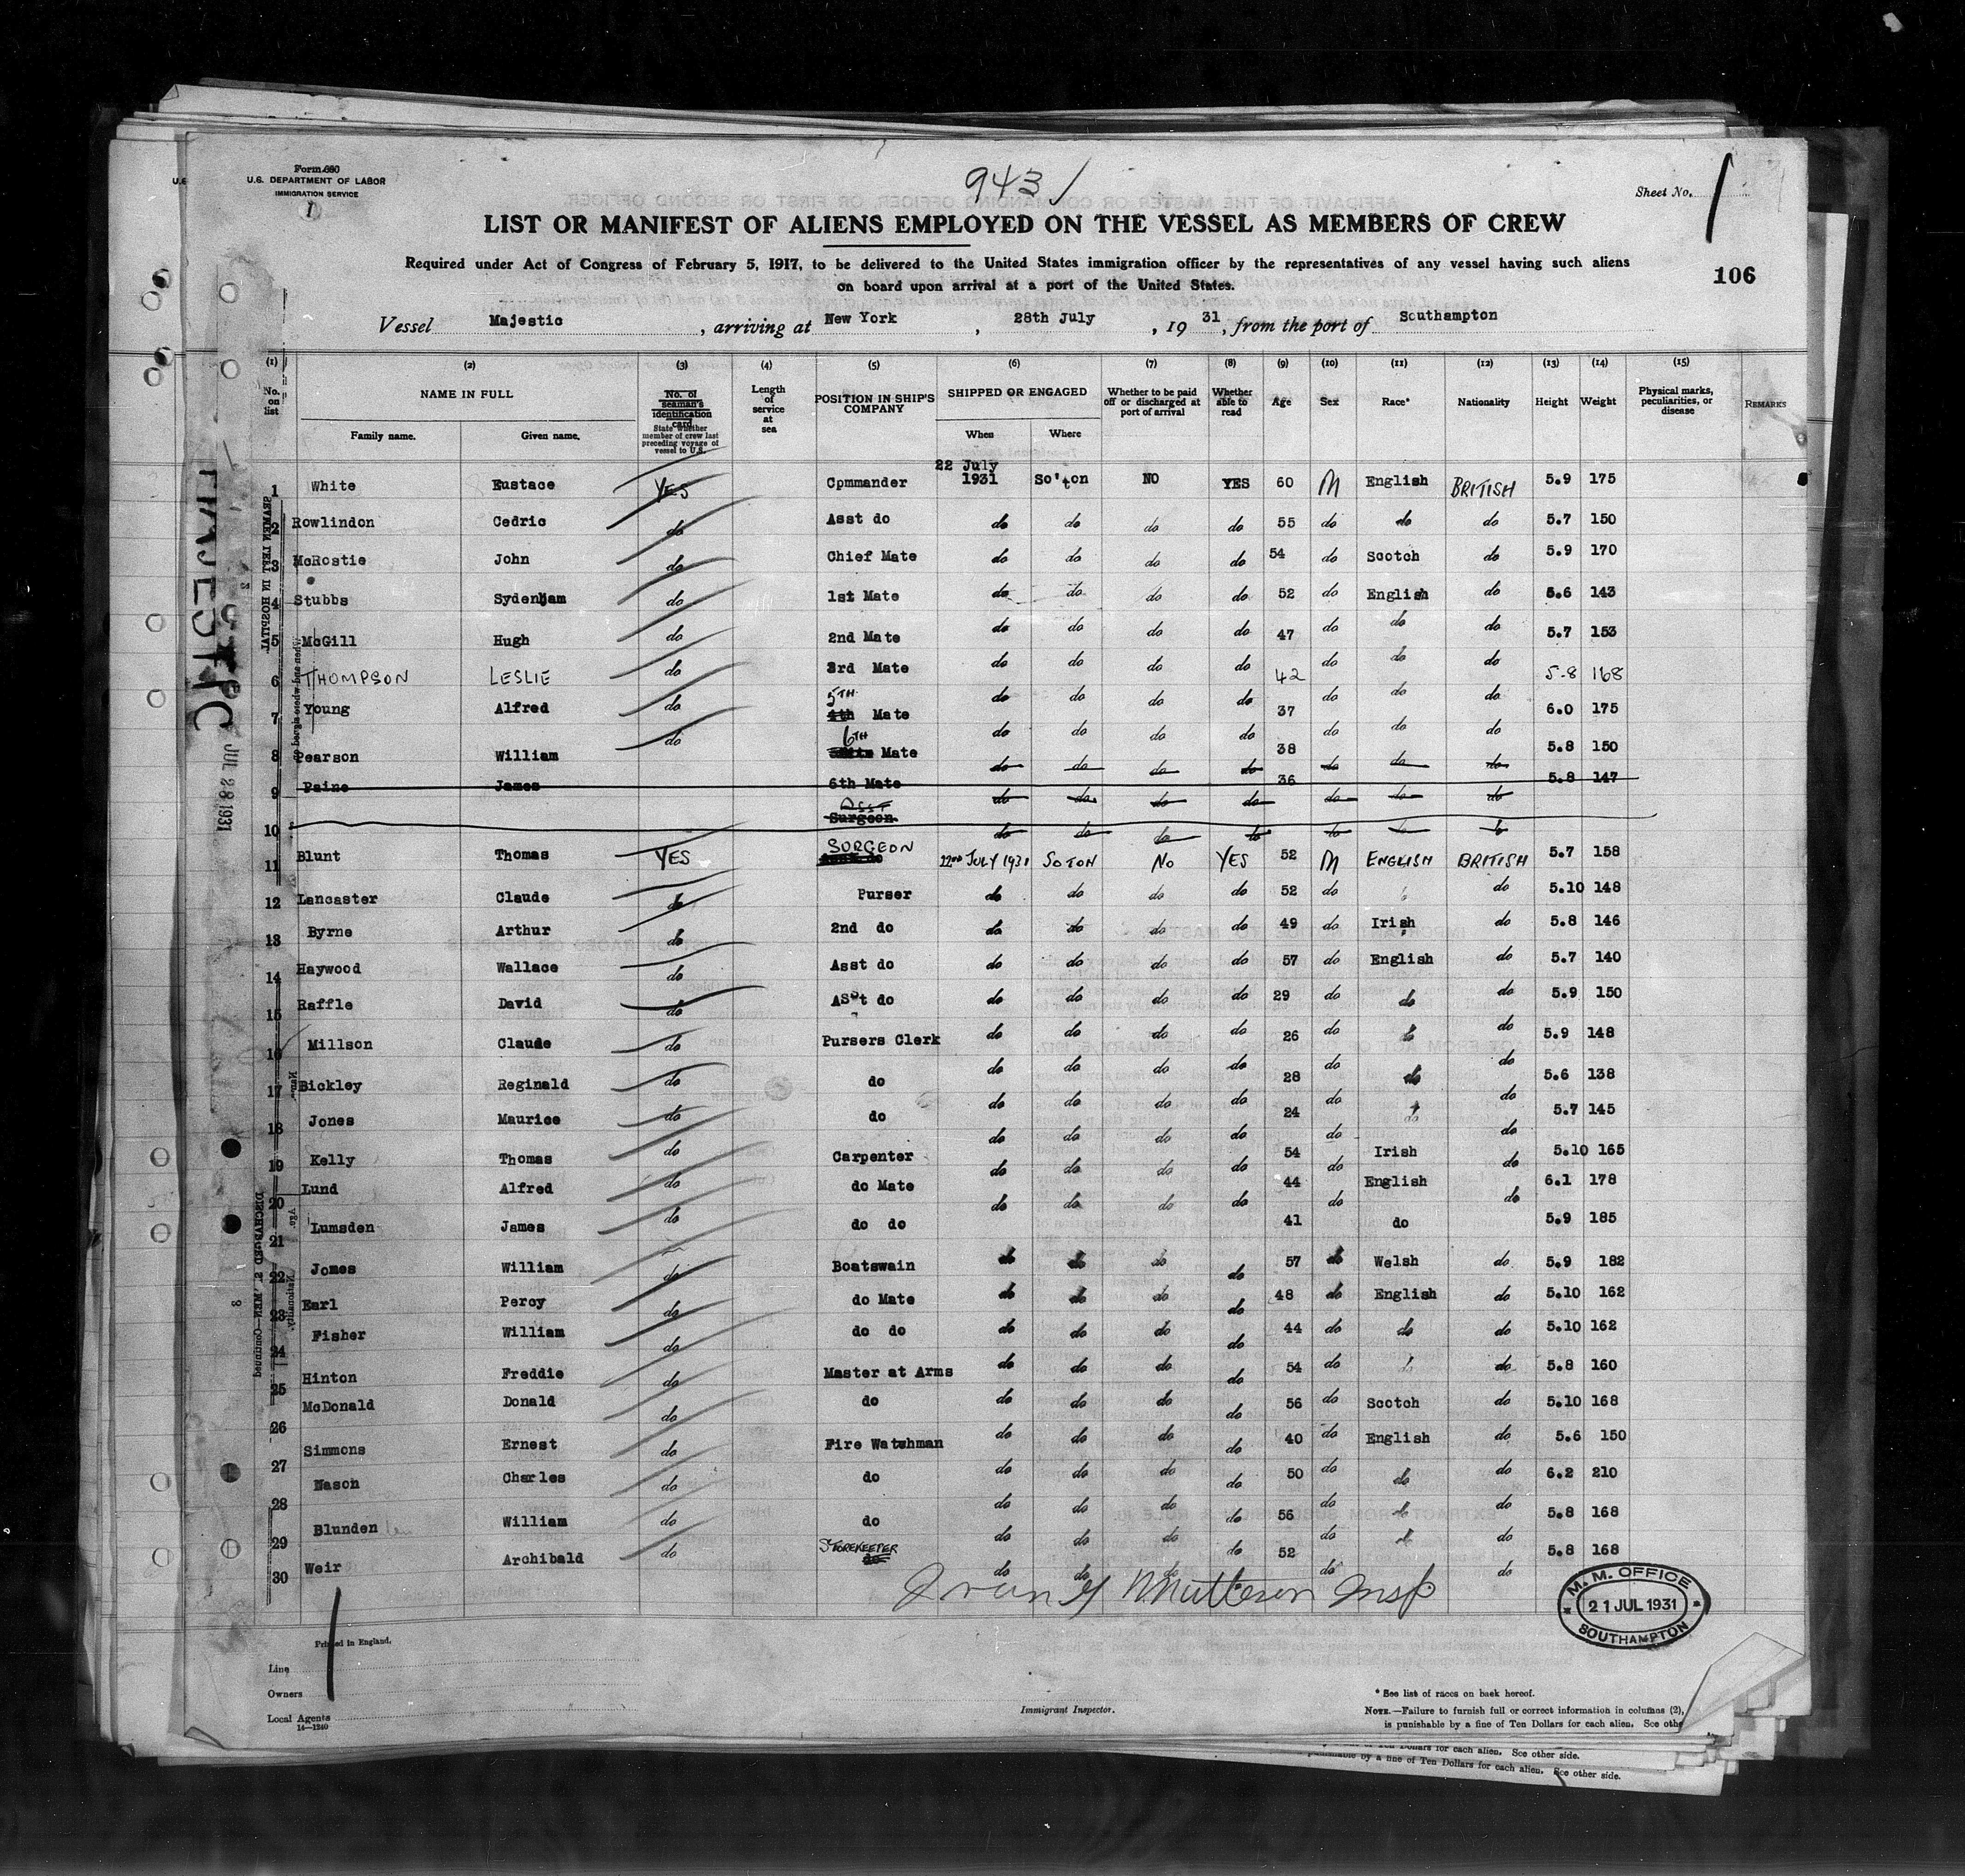 943
Form 680
U.S. DEPARTMENT OF LABOR
IMMIGRATION SERVICE
1
Sheet No. 1
LIST OR MANIFEST OF ALIENS EMPLOYED ON THE VESSEL AS MEMBERS OF CREW
Required under Act of Congress of February 5, 1917, to be delivered to the United States immigration officer by the representatives of any vessel having such aliens
on board upon arrival at a port of the United States.
106
Vessel Majestic, arriving at New York, 28th July, 19 31, from the port of Southampton
(1) (2) (3) (4) (5) (6) (7) (8) (9) (10) (11) (12) (13) (14) (15)
No. on list NAME IN FULL Family name. Given name. No. of seaman's identification card State whether member of crew last preceding voyage of vessel to U.S. Length of service at sea POSITION IN SHIP'S COMPANY SHIPPED OR ENGAGED When Where Whether to be paid off or discharged at port of arrival Whether able to read Age Sex Race* Nationality Height Weight Physical marks, peculiarities, or disease REMARKS
1 White Eustace YES Cpmmander 22 July 1931 So'ton NO YES 60 M English BRITISH 5.9 175
2 Rowlindon Cedric do Asst do do do do do 55 do do do 5.7 150
3 McRostie John do Chief Mate do do do do 54 do Scotch do 5.9 170
4 Stubbs Sydenham do 1st Mate do do do do 52 do English do 5.6 143
5 McGill Hugh do 2nd Mate do do do do 47 do do do 5.7 153
6 THOMPSON LESLIE do 3rd Mate do do do do 42 do do do 5.8 168
7 Young Alfred do 5TH 4th Mate do do do do 37 do do do 6.0 175
8 Pearson William do 6TH Mate do do do do 38 do do do 5.8 150
9 Paine James 6th Mate do do do do 36 do do do 5.8 147
10 Asst Surgeon do do do do do do do
11 Blunt Thomas YES SURGEON 22ND JULY 1931 SOTON NO YES 52 M ENGLISH BRITISH 5.7 158
12 Lancaster Claude do Purser do do do do 52 do do 5.10 148
13 Byrne Arthur do 2nd do do do do do 49 do Irish do 5.8 146
14 Haywood Wallace do Asst do do do do do 57 do English do 5.7 140
15 Raffle David do Asst do do do do do 29 do do do 5.9 150
16 Millson Claude do Pursers Clerk do do do do 26 do do do 5.9 148
17 Bickley Reginald do do do do do do 28 do do do 5.6 138
18 Jones Maurice do do do do do do 24 do do do 5.7 145
19 Kelly Thomas do Carpenter do do do do 54 do Irish do 5.10 165
20 Lund Alfred do do Mate do do do do 44 do English do 6.1 178
21 Lumsden James do do do do do do do 41 do do do 5.9 185
22 Jones William do Boatswain do do do do 57 do Welsh do 5.9 182
23 Earl Percy do do Mate do do do do 48 do English do 5.10 162
24 Fisher William do do do do do do do 44 do do do 5.10 162
25 Hinton Freddie do Master at Arms do do do do 54 do do 5.8 160
26 McDonald Donald do do do do do do 56 do Scotch do 5.10 168
27 Simmons Ernest do Fire Watchman do do do do 40 do English do 5.6 150
28 Nason Charles do do do do do do 50 do do do 6.2 210
29 Blunden William do do do do do do 56 do do do 5.8 168
30 Weir Archibald do STOREKEEPER do do do do 52 do do do 5.8 168
Insp
M. M. OFFICE
21 JUL 1931
SOUTHAMPTON
MAJESTIC
JUL 28 1931
Printed in England.
Line
Owners
Local Agents
14—1240
Immigrant Inspector.
* See list of races on back hereof.
NOTE.—Failure to furnish full or correct information in columns (2),
is punishable by a fine of Ten Dollars for each alien. See othe
of Ten Dollars for each alien. See other side.
punishable by a fine of Ten Dollars for each alien. See other side.